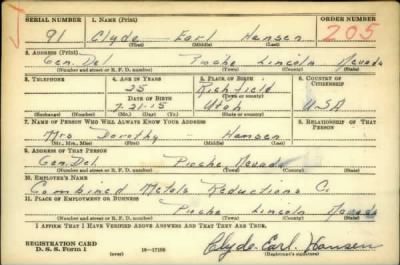 SERIAL NUMBER 1. NAME (Print) ORDER NUMBER
91 Clyde Earl Hansen 205
(First) (Middle) (Last)
2. ADDRESS (Print)
Gen. Del. Pioche Lincoln Nevada
(Number and street or R. F. D. number) (Town) (County) (State)
3. TELEPHONE 4. AGE IN YEARS 5. PLACE OF BIRTH 6. COUNTRY OF CITIZENSHIP
25 Richfield
DATE OF BIRTH (Town or county)
7-21-15 Utah USA
(Exchange) (Number) (Mo.) (Day) (Yr.) (State or country)
7. NAME OF PERSON WHO WILL ALWAYS KNOW YOUR ADDRESS 8. RELATIONSHIP OF THAT PERSON
Mrs Dorothy Hansen
(Mr., Mrs., Miss) (First) (Middle) (Last)
9. ADDRESS OF THAT PERSON
Gen. Del. Pioche, Nevada
(Number and street or R. F. D. number) (Town) (County) (State)
10. EMPLOYER'S NAME
Combined Metals Reductions C.
11. PLACE OF EMPLOYMENT OR BUSINESS
Pioche Lincoln Nevada
(Number and street or R. F. D. number) (Town) (County) (State)
I AFFIRM THAT I HAVE VERIFIED ABOVE ANSWERS AND THAT THEY ARE TRUE.
REGISTRATION CARD
D. S. S. Form 1 (over) 16-17105 Clyde Earl Hansen
(Registrant's signature)